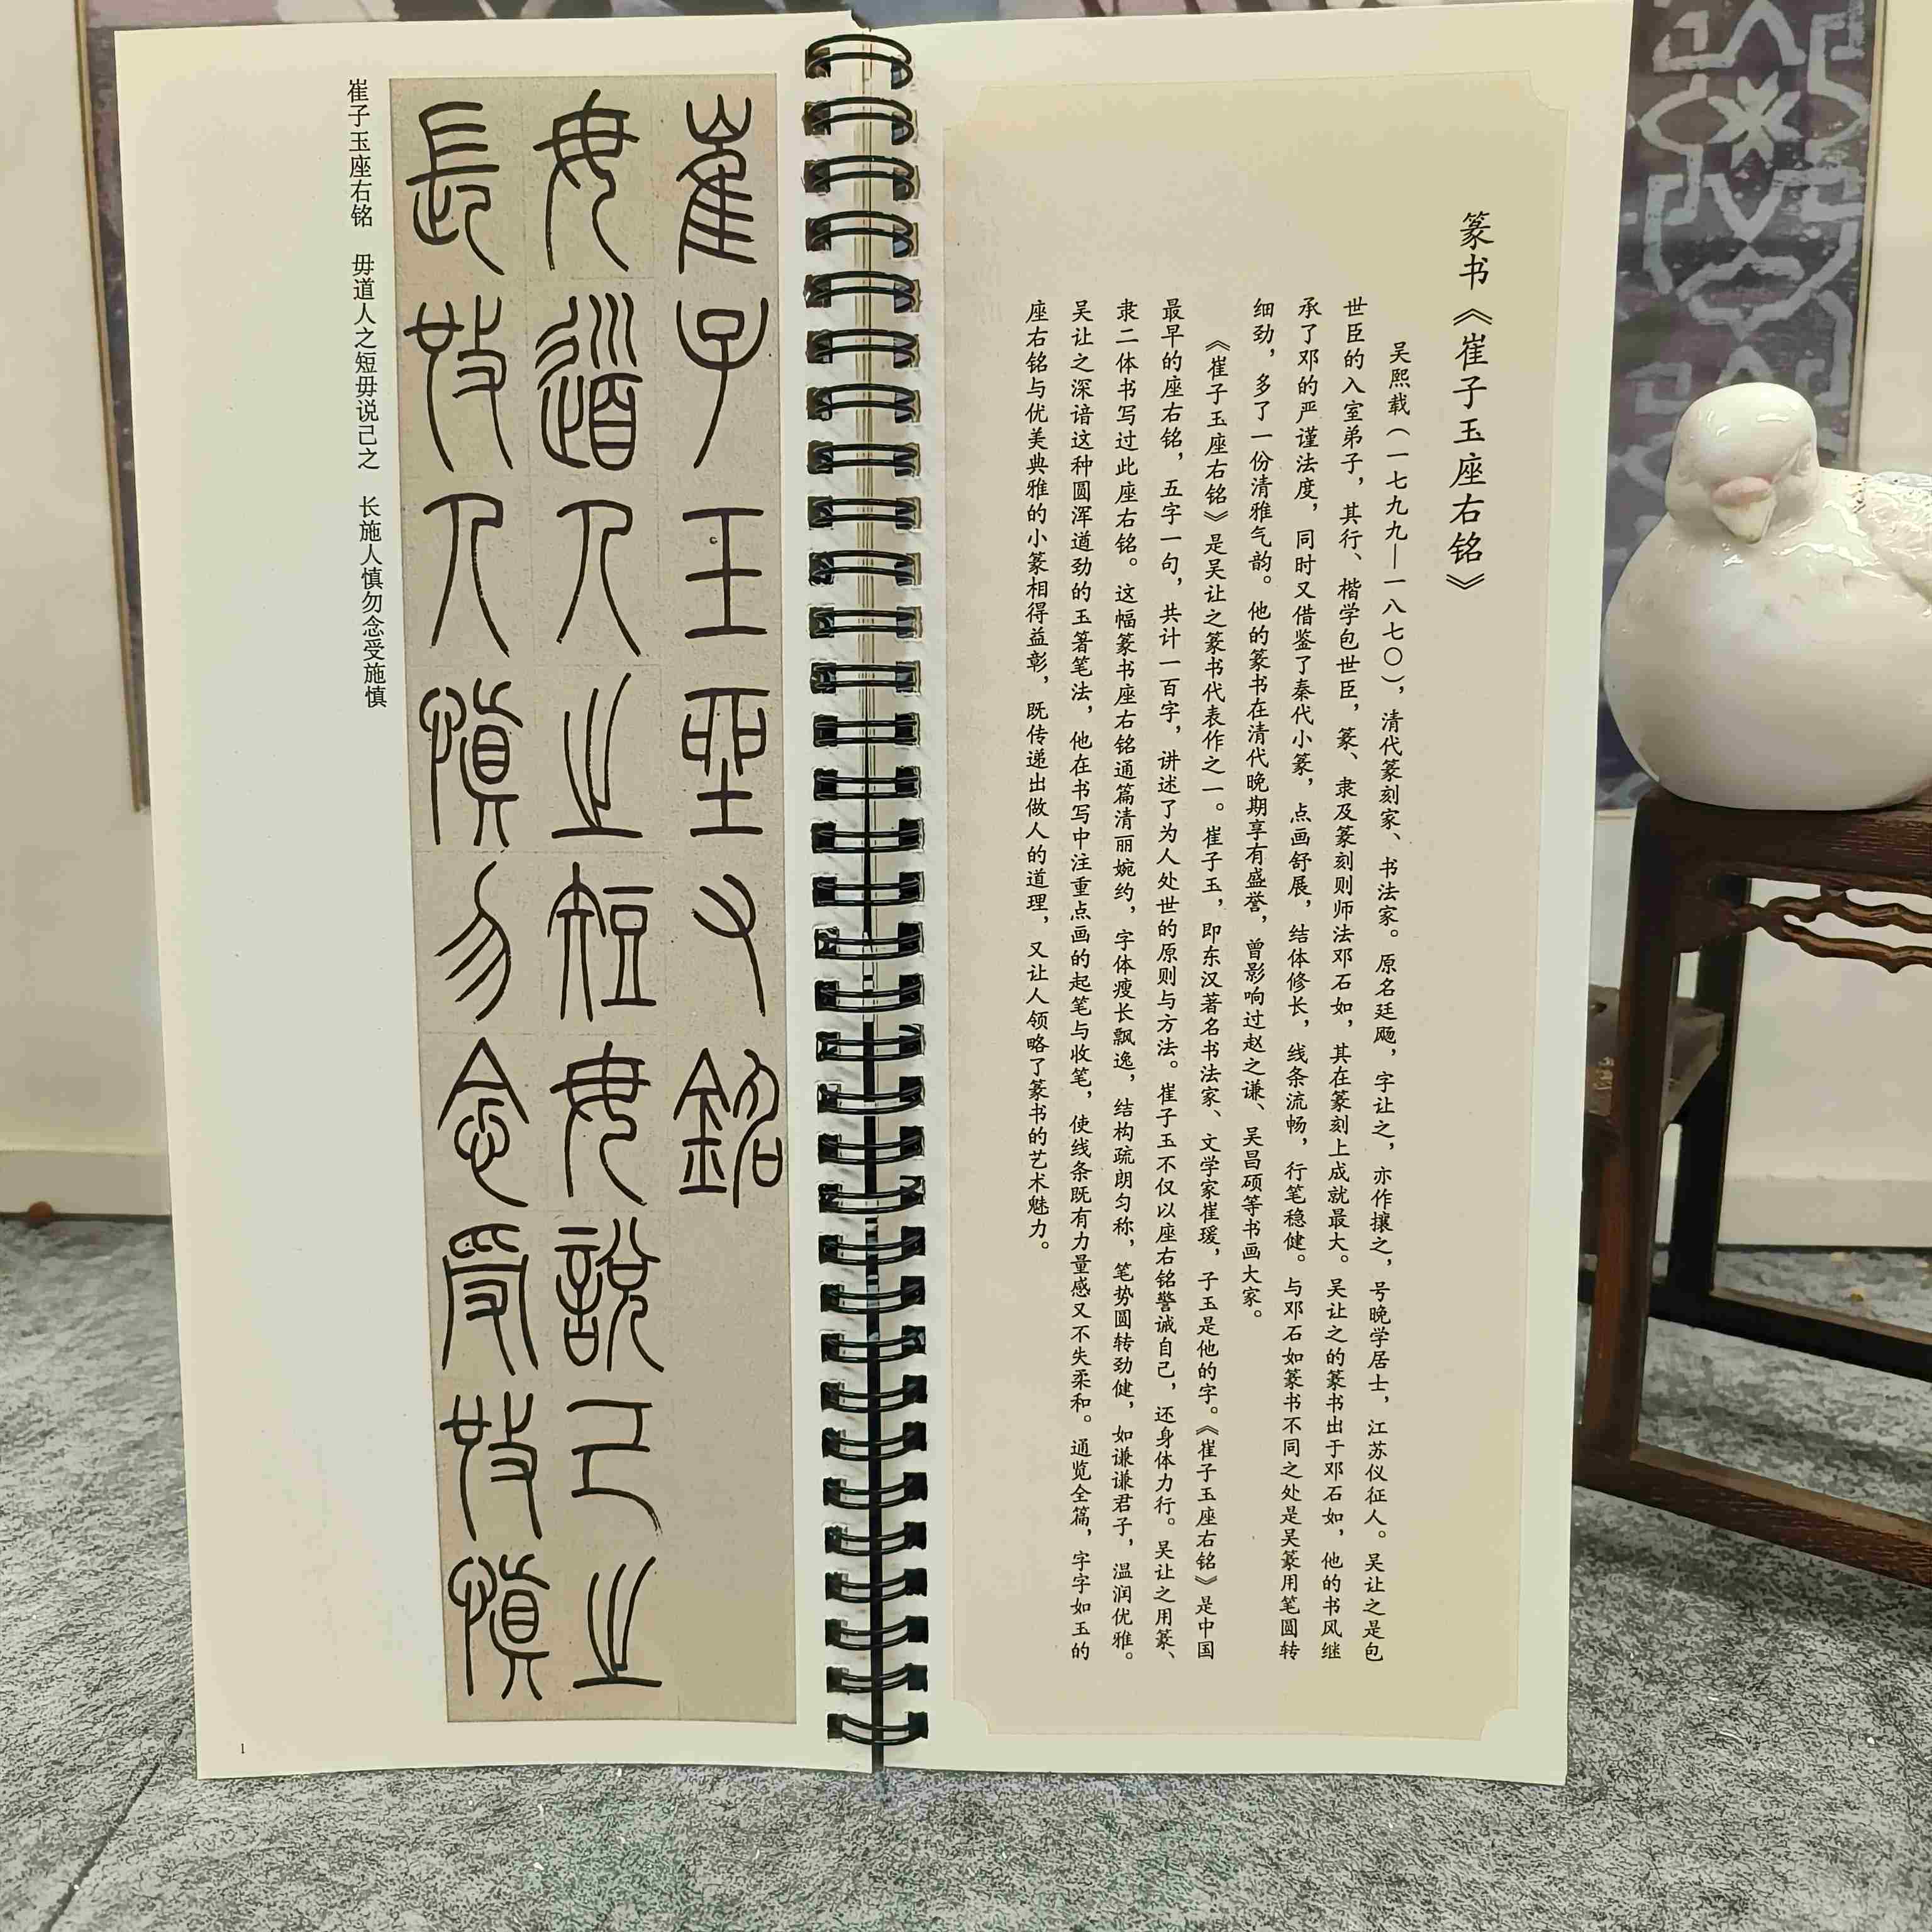 篆书《崔子玉座右铭》
吴熙载（一七九九—一八七〇），清代篆刻家、书法家。原名廷飏，字让之，亦作攘之，号晚学居士，江苏仪征人。吴让之是包
世臣的入室弟子，其行、楷学包世臣，篆、隶及篆刻则师法邓石如，其在篆刻上成就最大。吴让之的篆书出于邓石如，他的书风继
承了邓的严谨法度，同时又借鉴了秦代小篆，点画舒展，结体修长，线条流畅，行笔稳健。与邓石如篆书不同之处是吴篆用笔圆转
细劲，多了一份清雅气韵。他的篆书在清代晚期享有盛誉，曾影响过赵之谦、吴昌硕等书画大家。
《崔子玉座右铭》是吴让之篆书代表作之一。崔子玉，即东汉著名书法家、文学家崔瑗，子玉是他的字。《崔子玉座右铭》是中国
最早的座右铭，五字一句，共计一百字，讲述了为人处世的原则与方法。崔子玉不仅以座右铭警诫自己，还身体力行。吴让之用篆、
隶二体书写过此座右铭。这幅篆书座右铭通篇清丽婉约，字体瘦长飘逸，结构疏朗匀称，笔势圆转劲健，如谦谦君子，温润优雅。
吴让之深谙这种圆浑遒劲的玉箸笔法，他在书写中注重点画的起笔与收笔，使线条既有力量感又不失柔和。通览全篇，字字如玉的
座右铭与优美典雅的小篆相得益彰，既传递出做人的道理，又让人领略了篆书的艺术魅力。
崔子玉座右銘
毋道人之短毋說己之
長施人慎勿念受施慎
崔子玉座右铭 毋道人之短毋说己之 长施人慎勿念受施慎
1